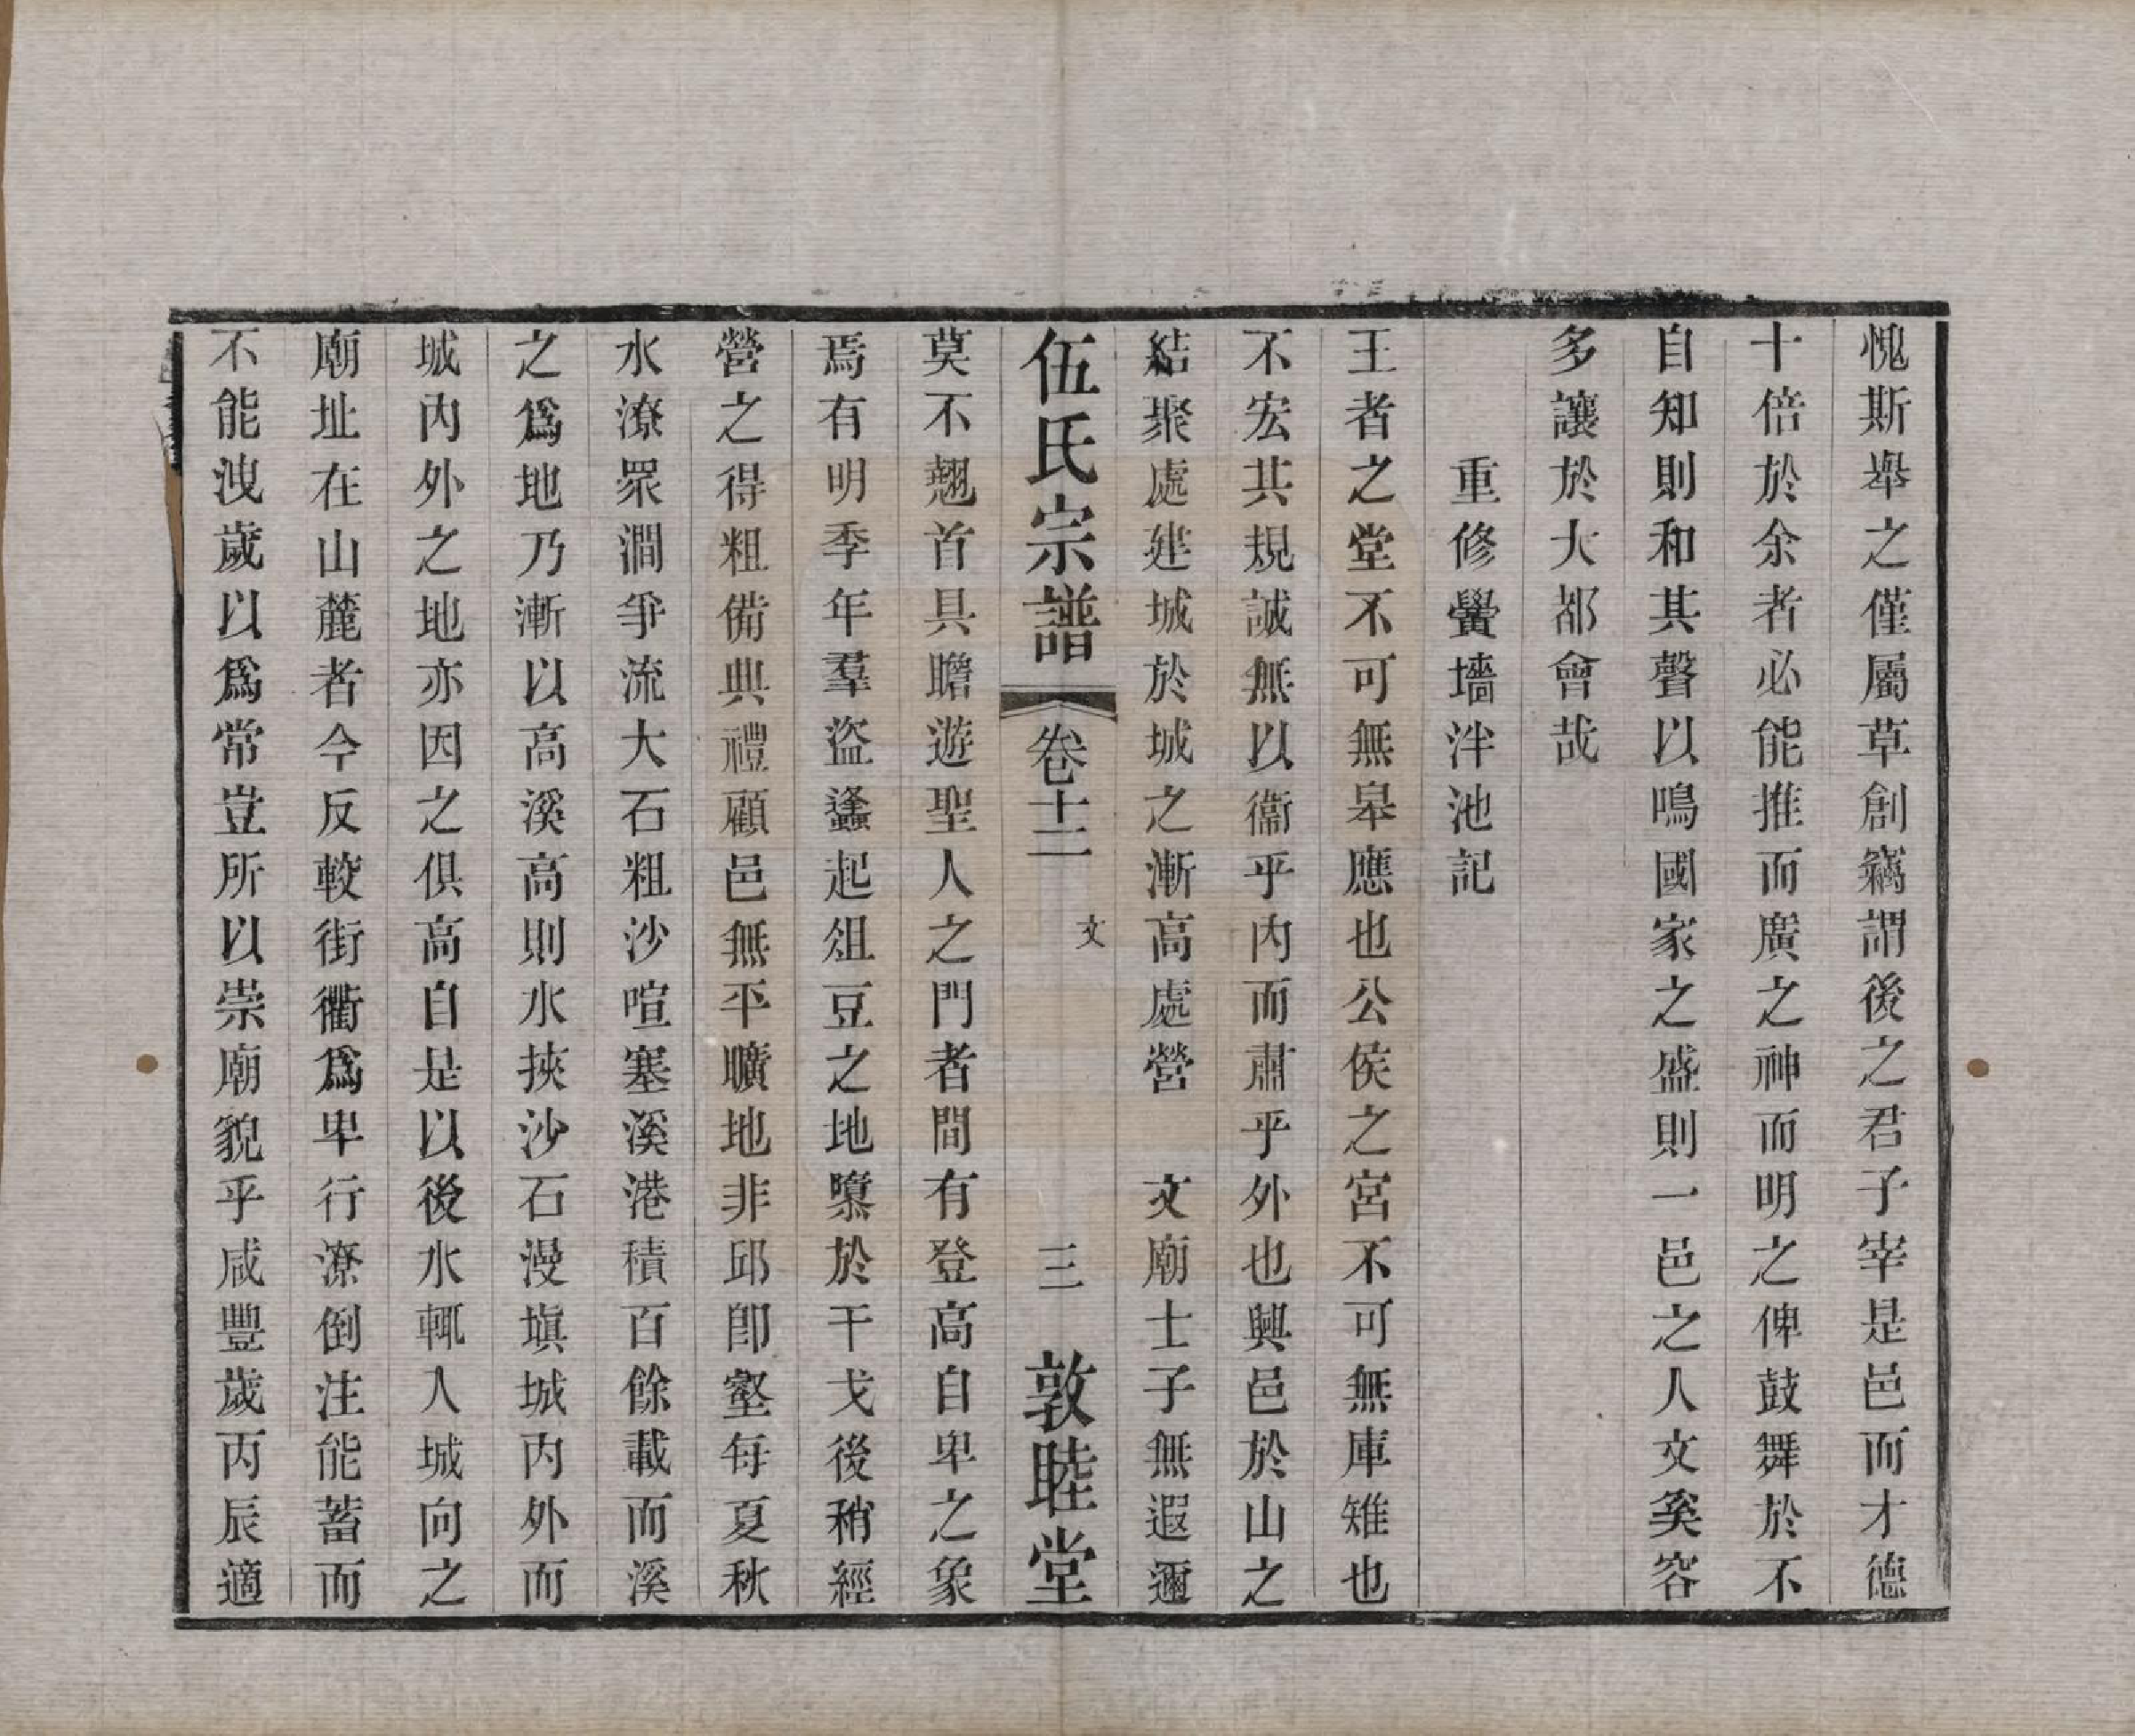 愧斯舉之僅屬草創竊謂後之君子宰是邑而才德
十倍於余者必能推而廣之神而明之俾鼓舞於不
自知則和其聲以鳴國家之盛則一邑之人文奚容
多讓於大都會哉
重修黌墻泮池記
王者之堂不可無皋應也公侯之宮不可無庫雉也
不宏其規誠無以衞乎內而肅乎外也興邑於山之
結聚處建城於城之漸高處營　文廟士子無遐邇
伍氏宗譜　卷十二　文　三　敦睦堂
莫不翹首具瞻遊聖人之門者間有登高自卑之象
焉有明季年羣盜蠭起俎豆之地隳於干戈後稍經
營之得粗備典禮顧邑無平曠地非邱卽壑每夏秋
水潦眾澗爭流大石粗沙喧塞溪港積百餘載而溪
之爲地乃漸以高溪高則水挾沙石漫塡城內外而
城內外之地亦因之俱高自是以後水輒入城向之
廟址在山麓者今反較街衢爲卑行潦倒注能蓄而
不能洩歲以爲常豈所以崇廟貌乎咸豐歲丙辰適